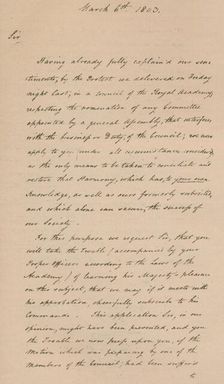 March 6th 1803.
Sir
Having already fully explain'd our sen
timents, by the Protest we delivered on Friday
night last, in a Council of the Royal Academy,
respecting the nomination of any Committee
appointed by a general Assembly, that interferes
with the business or Duty of the Council; we now
apply to you under all circumstances
as the only means to be taken to
restore that Harmony, which has, to your own
Knowledge, as well as ours formerly subsisted,
and which alone can secure, the success of
our Society.
For this purpose we request Sir, that you
will take the earliest accompanied by your
Proper Officers according to the Laws of the
Academy of learning his Majesty's pleasure
on this subject, that we may if it meets with
his approbation cheerfully subscribe to his
Commands. This application Sir, in our
opinion, might have been prevented, and you
the Trouble we now press upon you, if the
Motion which was preparing by one of the
members of the Council, had been
to